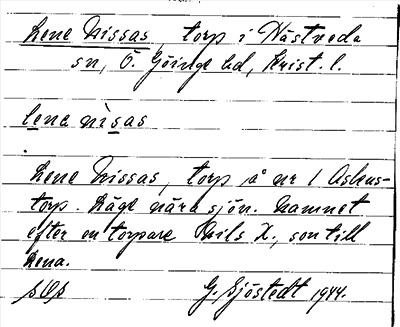 Lene Nissas, torp i Nästveda
sn, Ö. Göinge hd, Krist. l.
lena nisas
Lene Nissas, torp å nr 1 Askus-
torp. Läge nära sjön. Namnet
efter en torpare Nils X., son till
Lena.
G. Sjöstedt 1944.